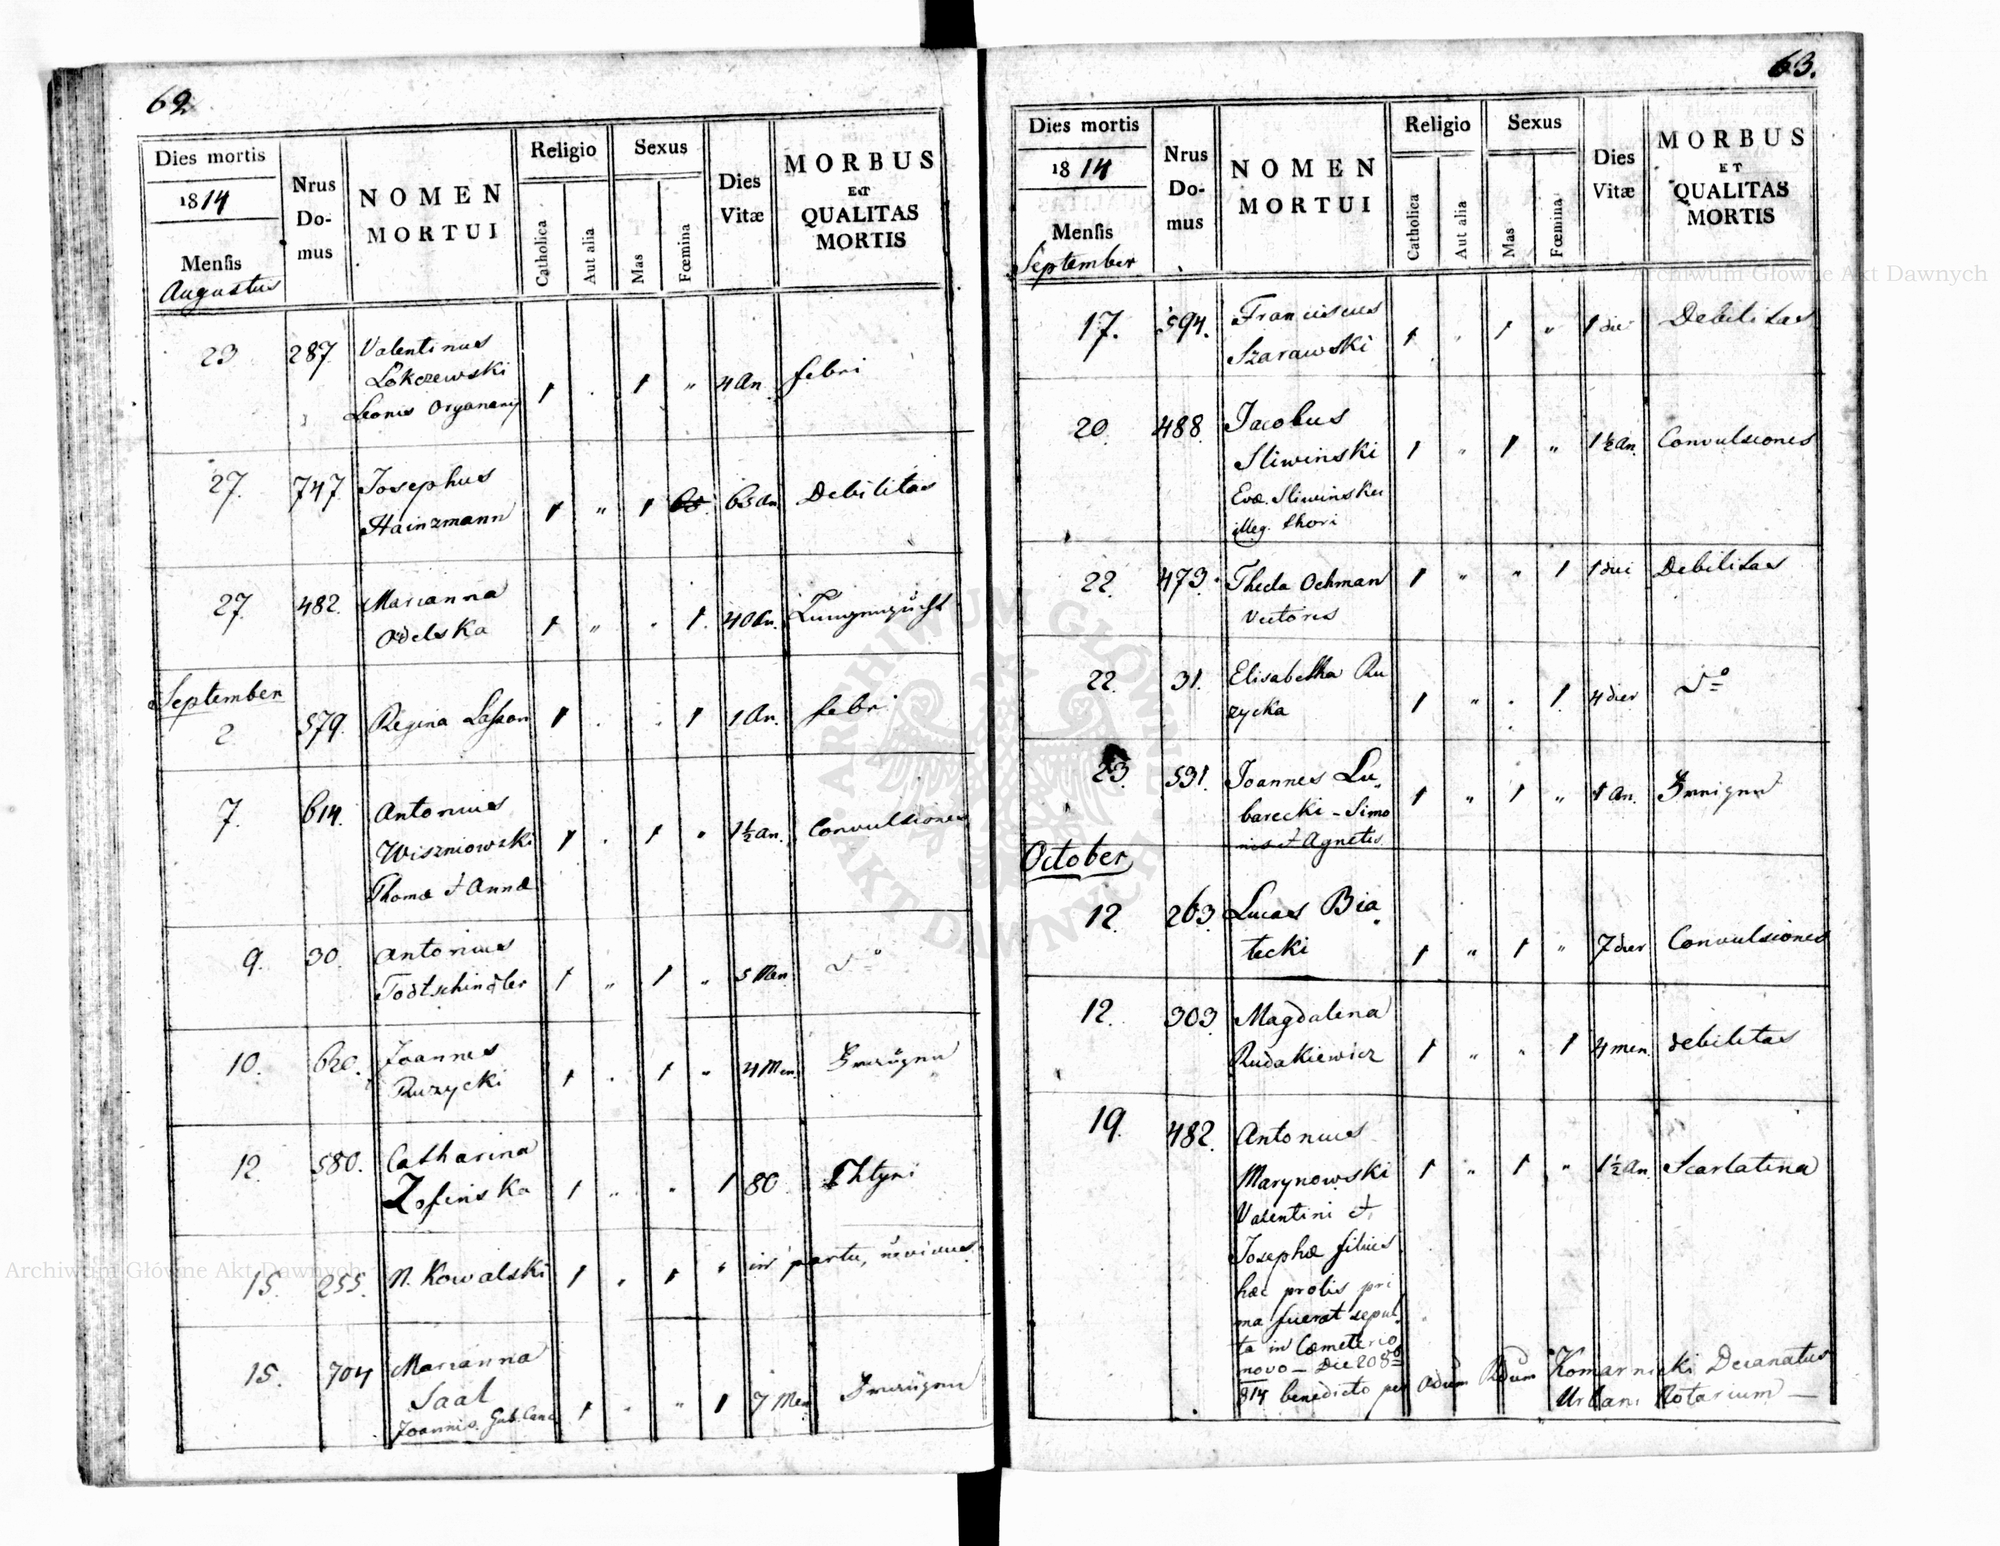 62
Dies mortis
1814
Mensis
Augustus
Nrus
Do-
mus
NOMEN
MORTUI
Religio
Catholica
Aut alia
Sexus
Mas
Fœmina
Dies
Vitæ
MORBUS
ET
QUALITAS
MORTIS
23 287 Valentinus
Lokczewski
Leonis Organary 1 . 1 „ 4 An. febri
27. 747. Josephus
Hainzmann 1 „ 1 63 An Debilitas
27. 482. Marianna
Odelska 1 „ . 1. 40 An.
September
2 579. Regina 1 . . 1 1 An. febri
7. 614. Antonius
Wiszniowski 1 . 1 „ 1½ An. Convulsiones
Thomæ et Annæ
9. 30. Antonius
Todtschindler 1 „ 1 „ 5 Men. do
10. 620. Joannes
Ruzycki 1 . 1 „ 4 Men.
12. 580. Catharina
Zofinska 1 „ „ 1 80.
15. 255. N. Kowalski 1 . 1 „ in partu,
15. 704 Marianna
Saal 1 . „ 1 7 Men
Joannis. Gub. Canc
63.
Dies mortis
1814
Mensis
September
Nrus
Do-
mus
NOMEN
MORTUI
Religio
Catholica
Aut alia
Sexus
Mas
Fœmina
Dies
Vitæ
MORBUS
ET
QUALITAS
MORTIS
17. 594. Franciscus
Szarawski 1 „ 1 „ 1 die Debilitas
20. 488. Jacobus
Sliwinski 1 „ 1 „ 1½ An. Convulsiones
Evæ Sliwinska
illeg. thori
22. 473. Thecla Oehman 1 „ „ 1 1 diei Debilitas
22. 31. Elisabetha Ru
zycka 1 „ . 1. 4 dier do
23 531. Joannes Lu
barecki - Simo 1 „ 1 „ 1 An.
nis et Agnetis
October
12. 263. Lucas Bia
tecki 1 „ 1 „ 7 dier Convulsiones
12. 303. Magdalena
Rudakiewicz 1 „ „ 1 4 men. debilitas
19. 482. Antonius
Marynowski 1 „ 1 „ 1½ An. Scarlatina
Valentini et
Josephæ filius
hæc prolis pri
ma fuerat sepul
ta in Cœmeterio
novo - Die 20 8b
814 benedicto per Komarnicki Decanatus
Urbani Notarium
Archiwum Główne Akt Dawnych
Archiwum Główne Akt Dawnych
ARCHIWUM GŁÓWNE · AKT DAWNYCH ·